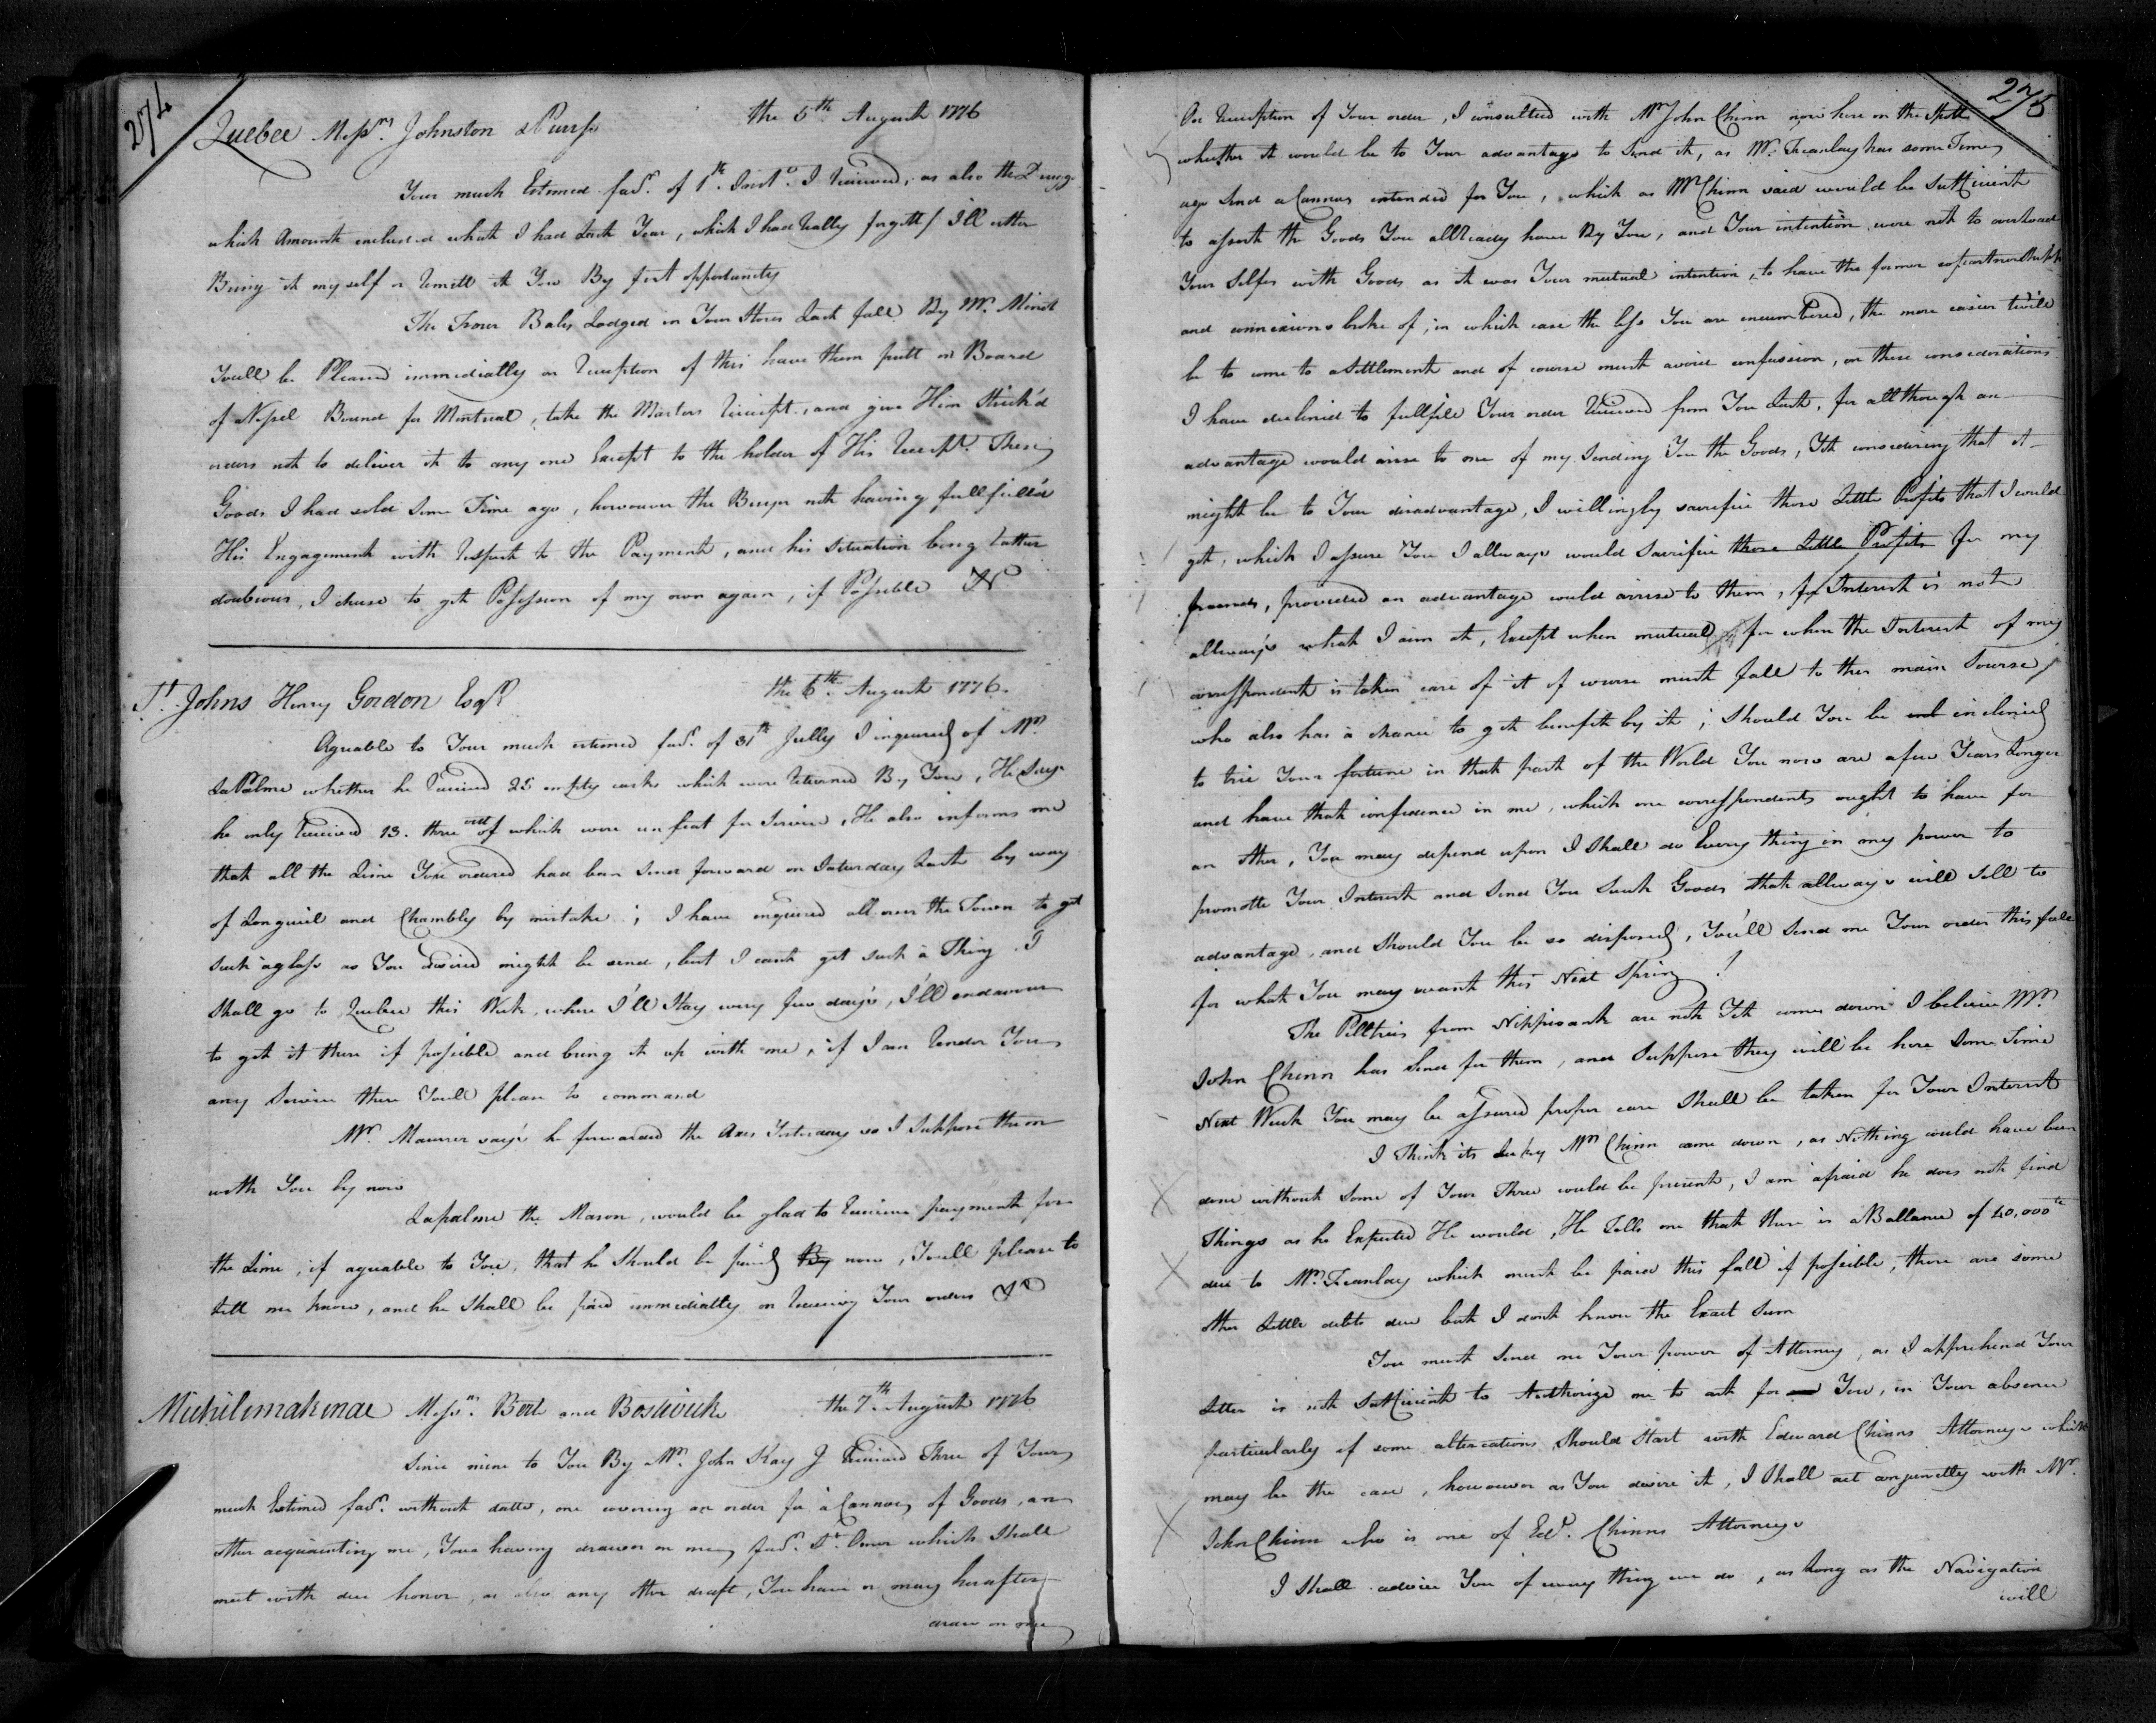 274
Quebec Messrs. Johnston & Purss the 5th August 1776
Your much Estimed favr. of 1th. Inst. I Received, as also the
which Amount included what I had Last Year, which I had Really forgett / I'll either
Bring it my self or Remitt it You By first opportunity
The Four Bales Lodged in Your Stores Last fall By Mr. Minot
Youll be Pleased immediatly on Reception of this have them putt on Board
of Vessel Bound for Montreal, take the Masters Receipt, and give Him Strick'd
orders not to deliver it to any one Except to the holder of His Receipt. These
Goods I had sold some Time ago, howouver the Buyer not having fullfill'd
His Engagement with Respect to the Payment, and his situation being Rather
doubious, I chuse to get Possession of my own again, if Possible
St. Johns Henry Gordon Esqr. the 6th. August 1776.
Agreable to Your much estimed favr. of 31th July I inquired of Mr.
LaPalme whether he Received 25 empty casks which were Returned By You, He Says
he only Received 13. three out of which were unfeat for Service, He also informs me
that all the Lime You ordered had been Send forward on Saturday Last by way
of Longuiel and Chambly by mistake; I have enquired all over the Town to get
Such a glass as You desired might be send, but I cant get such à Thing. I
Shall go to Quebec this Week, where I'll Stay very few day's, I'll endavour
to get it there if possible and bring it up with me, if I can Render You
any Service there Youll please to command
Mr. Maurer say's he forwarded the Axes Yesterday so I Suppose them
with You by now
Lapalme the Mason, would be glad to Receive payment for
the Lime, if agreable to You, that he Should be paid By now, Youll please to
Lett me know, and he Shall be paid immediatly on Receiving Your orders
Michilimakinac Messrs. Bert and Bostwick the 7th. August 1776
Since mine to You By Mr. John Kay I Received Three of Your
much Estimed favr. without datte, one covering an order for à Cannoe of Goods, an
other acquainting me, Your having drawn on me, favr. St. Omer which Shall
meet with due honor, as also any other draft, You have or may herafter
draw on me
275
On Reception of Your order, I consulted with Mr John Chinn now here on the Spott
whether it would be to Your advantage to Send it, as Mr. Franlay has some Time
ago Send a Cannoe intended for You, which as Mr Chinn said would be Sufficient
to assort the Goods You allready have By You, and Your intention were not to overload
Your Selfes with Goods as it was Your mutual intention, to have the former copartnershipp
and connexions broke of; in which case the less You are encumbered, the more easier twill
be to come to a Settlement and of course must avoid confussion, on these considerations
I have declined to fullfill Your order Received from You Last, for allthough an
advantage would arise to me of my Sending You the Goods, Yet considering that it
might be to Your disadvantage, I willingly sacrifice those Little Profits that I would
get, which I assure You I allways would Sacrifice those Little Profits for my
freends, provided an advantage would arrise to them, for Interest is not
allway's what I aim at, Except when mutual, for when the Interest of my
correspondent is taken care of it of course must fall to ther main Sourse,
who also has à chance to get benefit by it; Should You be inclined
to trie Your fortune in that part of the World You now are a few Years Longer
and have that confidence in me, which one correspondents ought to have for
an other, You may depend upon I Shall do Every thing in my power to
promotte Your Interest and Send You Such Goods that allways will Sell to
advantage, and Should You be so disposed, You'll Send me Your order this fall
for what You may want this Next Spring!
The Pelltries from Nippisank are not Yet come down I believe Mr.
John Chinn has Send for them, and Suppose they will be here Some Time
Next Week You may be assured proper care Shall be taken for Your Interest
I Think its Lucky Mr. Chinn came down, as Nothing would have been
done without Some of Your Three would be present, I am afraid he does not find
Things as he Expected He would, He Tells me that there is a Ballance of 40,000
due to Mr. Franlay which must be paid this fall if possible, there are some
other Little debts due but I dont know the Exact Sum
You must Send me Your power of Attorney, as I apprehend Your
Letter is not Sufficient to Authorize me to act for You, in Your absence
particularly if some altercations Should Start with Edward Chinns Attorneys which
may be the case, howouver as You desire it, I Shall act conjunctly with Mr.
John Chinn who is one of Edd. Chinns Attorneys
I Shall advice You of every thing we do, as Long as the Navigation
will